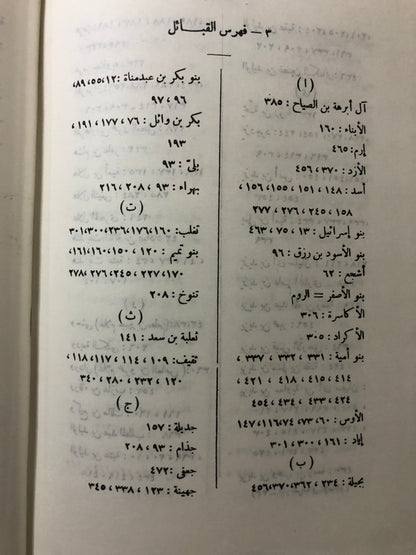 ٣ – فهرس القبائل
(ا)
آل أبرهة بن الصياح : ٣٨٥
الأبناء : ١٦٠
إرم: ٤٦٥
الأزد : ٣٧٠ ، ٤٥٦
أسد : ١٤٨ ، ١٥١ ، ١٥٥ ، ١٥٦ ،
١٥٨ ، ٢٤٥ ، ٢٧٦ ، ٢٧٧
بنو إسرائيل : ١٣ ، ٧٥ ، ٤٦٣
بنو الأسود بن رزق : ٩٦
أشجع : ٦٢
بنو الأصفر = الروم
الأكاسرة : ٣٠٦
الأكراد : ٣٠٥
بنو أمية : ٣٣١ ، ٣٣٢ ، ٣٣٧ ،
٤١٤ ، ٤١٥ ، ٤١٨ ، ٤٢١ ،
٤٢٤ ، ٤٣٣ ، ٤٣٤ ، ٤٥٤
الأوس : ٦٠ ، ٧٣ ، ٧٤ ، ١١٦ ، ١٤٧
إياد : ١٦١ ، ٣٠٠ ، ٣٠١
(ب)
بجيلة : ٢٣٤ ، ٣٦٢ ، ٣٧٠ ، ٤٥٦
بنو بكر بن عبدمناة : ١٢ ، ٥٥ ، ٨٩ ،
٩٦ ، ٩٧
بكر بن وائل : ٧٦ ، ١٧٧ ، ١٩١ ،
١٩٣
بلىّ : ٩٣
بهراء : ٩٣ ، ٢٠٨ ، ٢١٦
(ت)
تغلب : ١٦٠ ، ١٧٦ ، ٢٣٦ ، ٣٠٠ ، ٣٠١
بنو تميم : ١٢٠ ، ١٥٠ ، ١٦٠ ، ١٦١ ،
١٧٠ ، ٢٢٧ ، ٢٤٥ ، ٢٧٦ ، ٢٧٨
تنوخ : ٢٠٨
(ث)
ثعلبة بن سعد : ١٤١
ثقيف : ١٠٩ ، ١١٤ ، ١١٧ ، ١١٨ ،
١٢٠ ، ٢٣٢ ، ٢٨٠ ، ٣٤٠
(ج)
جديلة : ١٥٧
جذام : ٩٣ ، ٢٠٨
جعفى : ٤٧٢
جهينة : ١٢٣ ، ٣٣٨ ، ٣٤٥